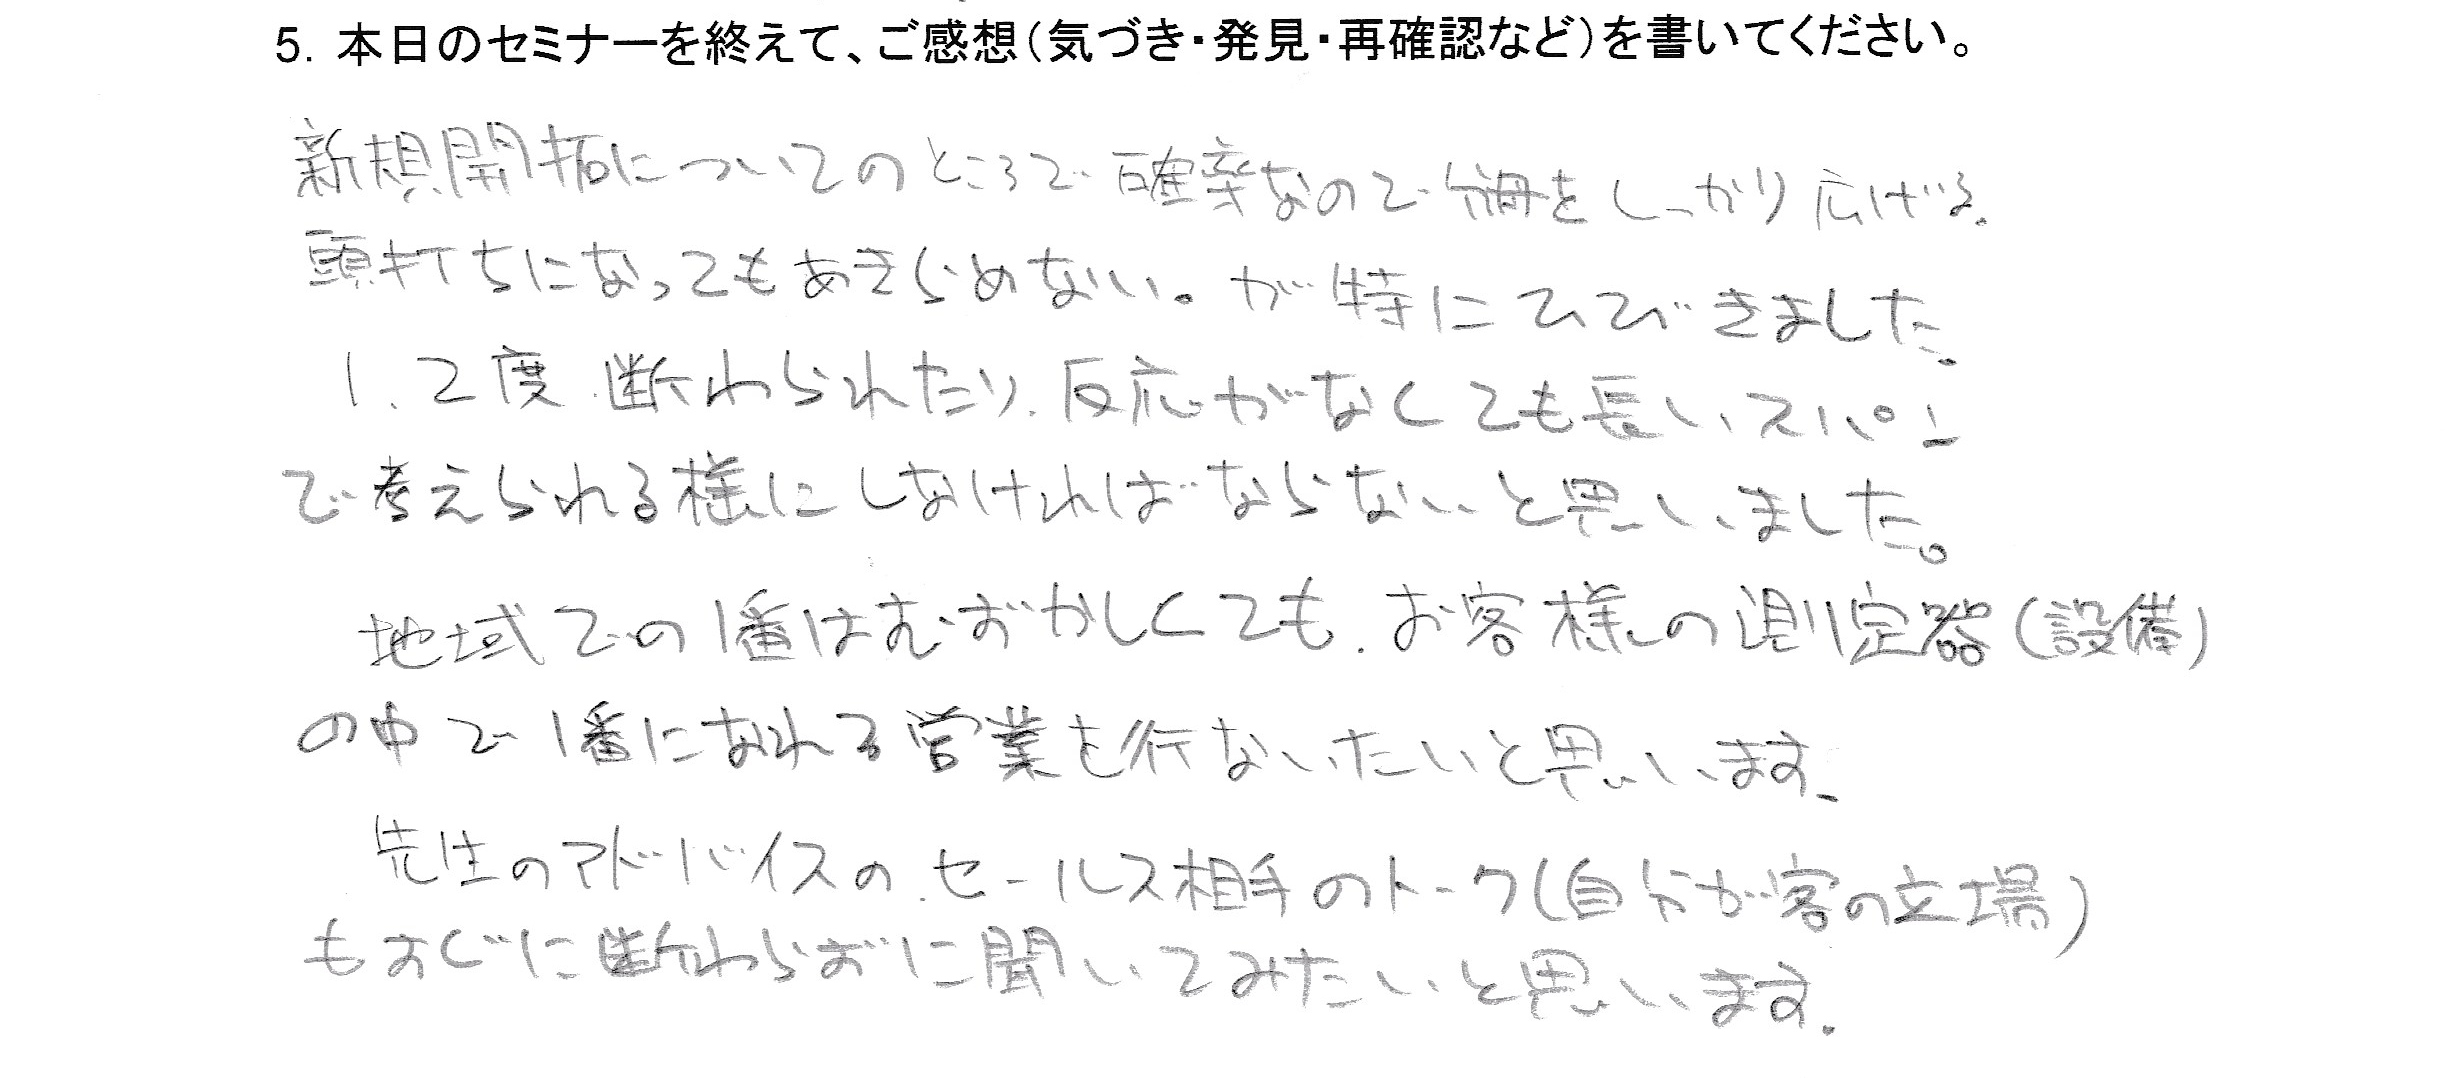 5. 本日のセミナーを終えて、ご感想(気づき・発見・再確認など)を書いてください。
新規開拓についてのところで確率なので網をしっかり広げる。
頭打ちになってもあきらめない。が特にひびきました。
1、2度断わられたり、反応がなくても長いスパン
で考えられる様にしなければならないと思いました。
地域での1番はむずかしくても、お客様の測定器(設備)
の中で1番になれる営業を行ないたいと思います。
先生のアドバイスの、セールス相手のトーク(自分が客の立場)
もすぐに断わらずに聞いてみたいと思います。